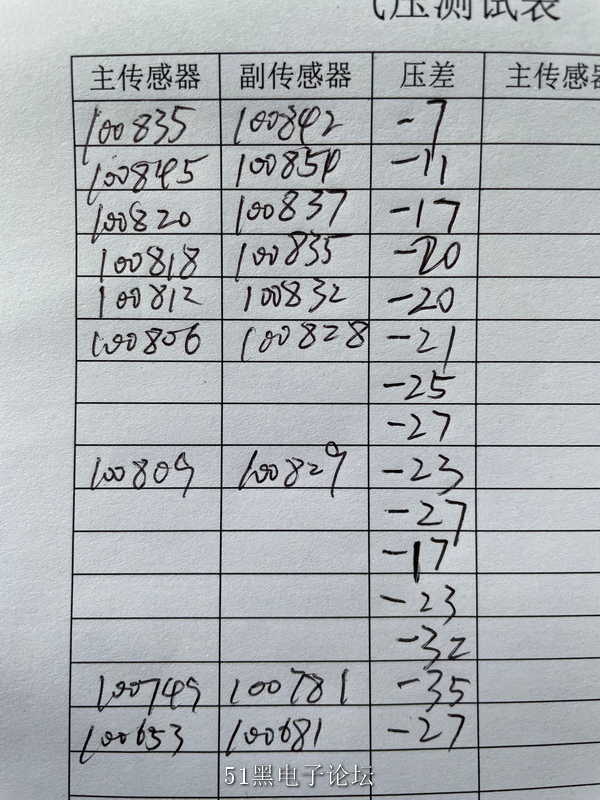 气压测试表
主传感器 副传感器 压差 主传感器
100835 100842 -7
100845 100854 -11
100820 100837 -17
100818 100835 -20
100812 100832 -20
100806 100828 -21
-25
-27
100809 100829 -23
-27
-17
-23
-32
100749 100781 -35
100653 100681 -27
51黑电子论坛